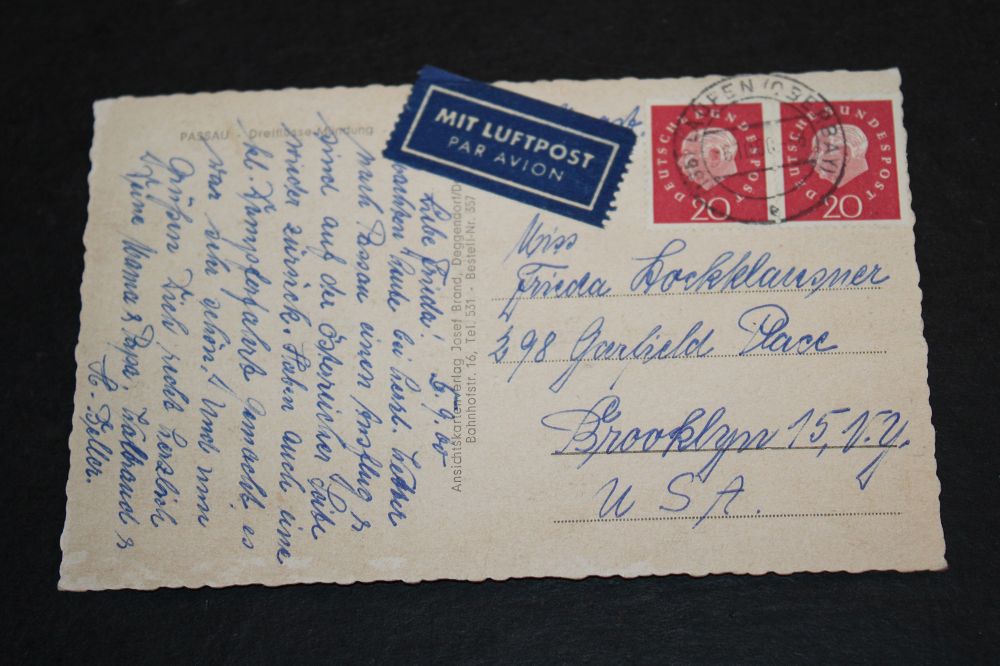 PASSAU - Dreiflüsse-Mündung
Liebe Frieda! 5.9.60
machten heute bei herrl. Wetter
nach Passau einen Ausflug &
sind auf der Österreicher Seite
wieder zurück. Haben auch eine
kl. Dampferfahrt gemacht es
war sehr schön! Und nun
grüßen Dich recht herzlich
Deine Mama & Papa,
Ansichtskartenverlag Josef Brand, Deggendorf/D
Bahnhofstr. 16, Tel. 531 - Bestell-Nr. 357
MIT LUFTPOST
PAR AVION
DEUTSCHE BUNDESPOST
20
DEUTSCHE BUNDESPOST
20
Miss
Frieda Hockklausner
398 Garfield Place
Brooklyn 15, N.Y.
USA.